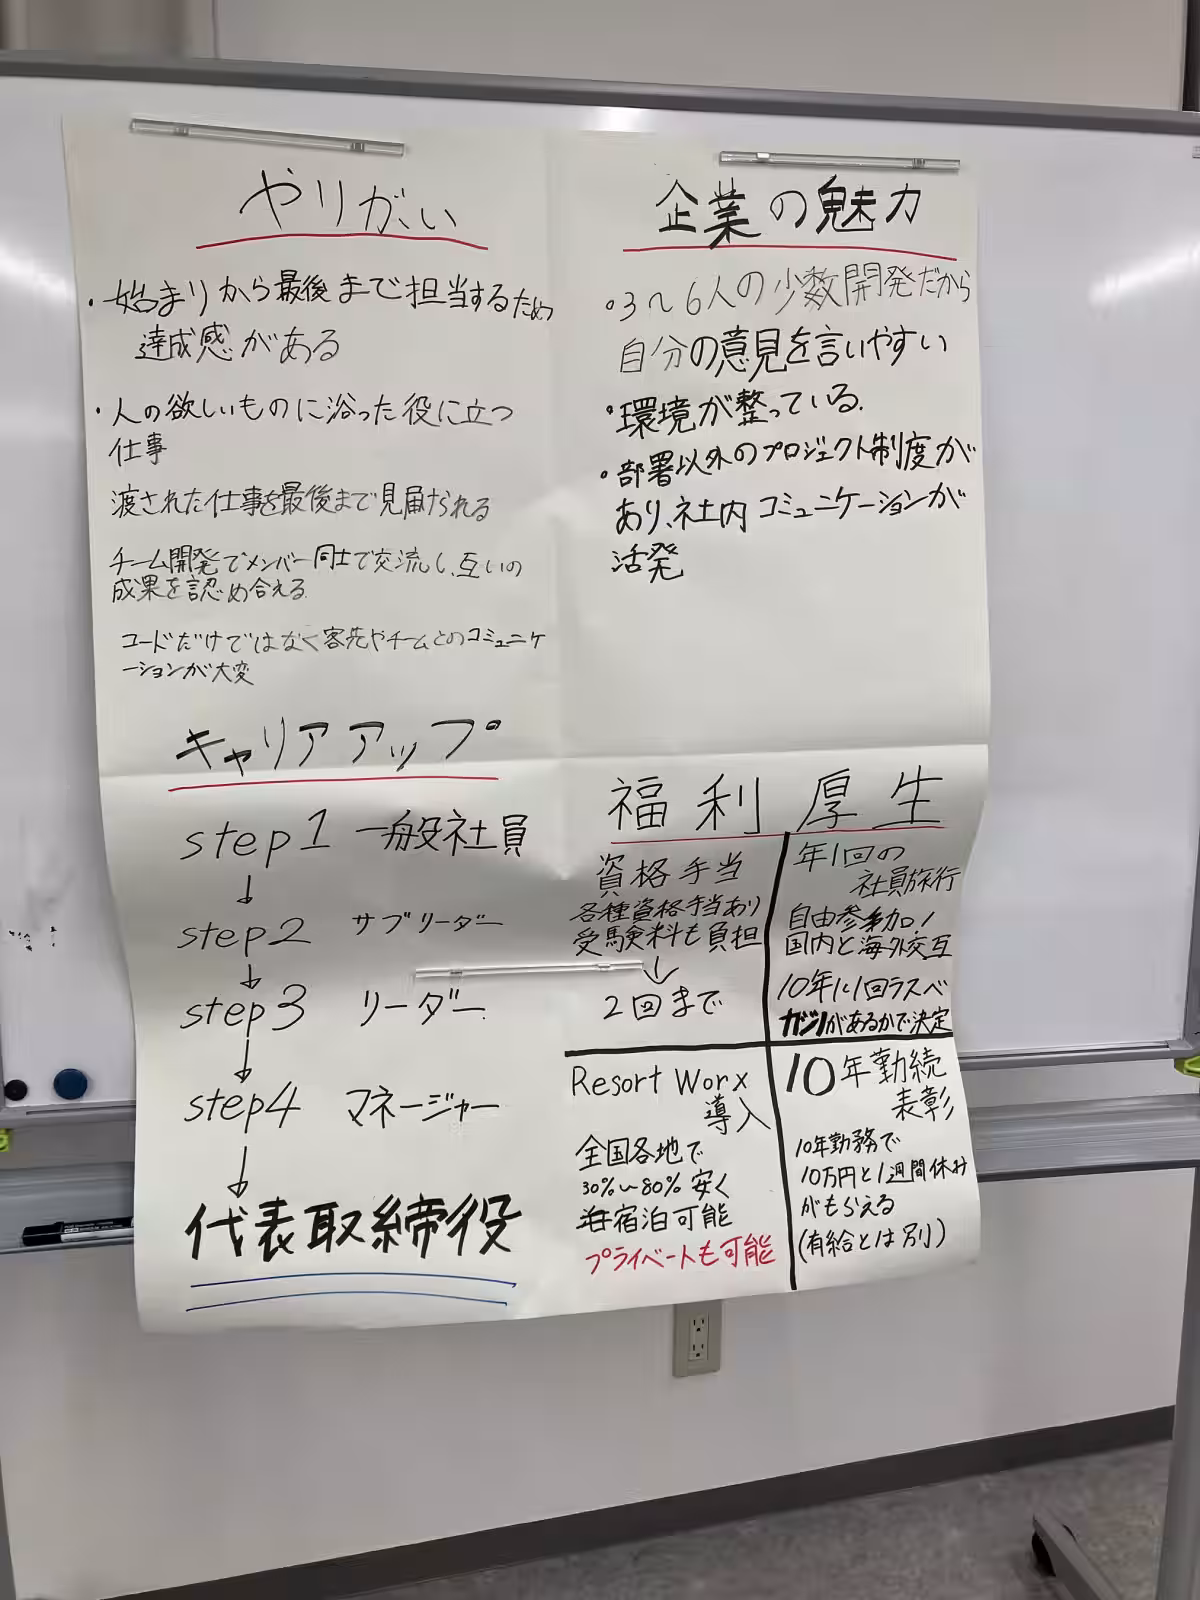 やりがい
・始まりから最後まで担当するため
達成感がある
・人の欲しいものに浴った役に立つ
仕事
渡された仕事を最後まで見届けられる
チーム開発でメンバー同士で交流し、互いの
成果を認め合える
コードだけではなく客先やチームとのコミュニケ
ーションが大変
企業の魅力
・3〜6人の少数開発だから
自分の意見を言いやすい
・環境が整っている.
・部署以外のプロジェクト制度が
あり、社内コミュニケーションが
活発
キャリアアップ
step1 一般社員
↓
step2 サブリーダー
↓
step3 リーダー
↓
step4 マネージャー
↓
代表取締役
福利厚生
資格手当
各種資格手当あり
受験料も負担
↓
2回まで
年1回の
社員旅行
自由参加!
国内と海外交互
10年に1回ラスベ
カジノがあるかで決定
Resort Worx
導入
全国各地で
30%〜80%安く
宿泊可能
プライベートも可能
10年勤続
表彰
10年勤務で
10万円と1週間休み
がもらえる
(有給とは別)